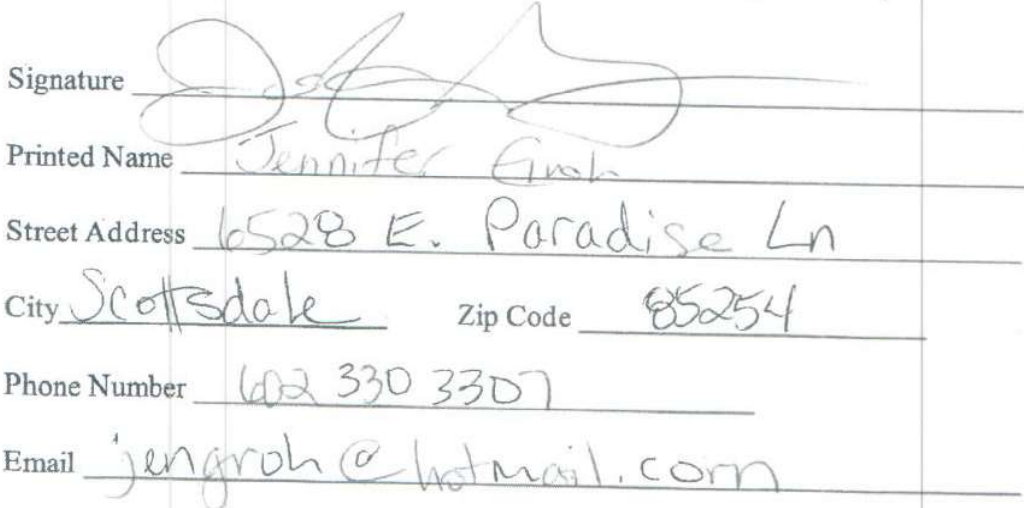 Signature
Printed Name Jennifer Groh
Street Address 6528 E. Paradise Ln
City Scottsdale Zip Code 85254
Phone Number 602 330 3307
Email jengroh@hotmail.com